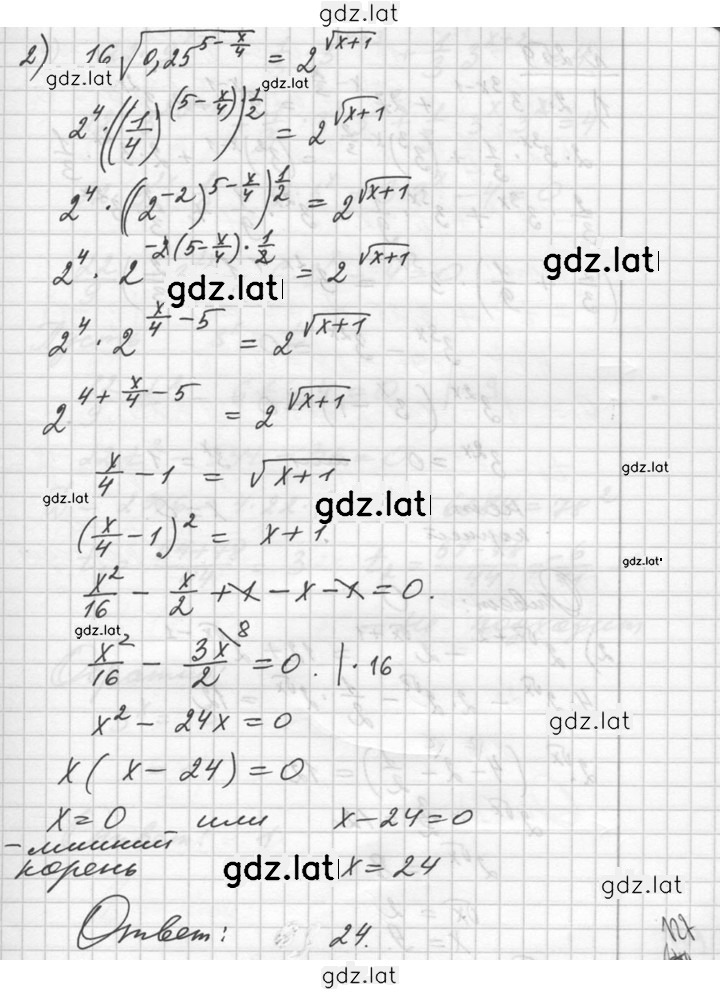 gdz.lat
2) 16√(0,25^(5 - x/4)) = 2^(√(x+1))
gdz.lat gdz.lat
2^4 · ((1/4)^((5 - x/4)))^(1/2) = 2^(√(x+1))
2^4 · ((2^(-2))^(5 - x/4))^(1/2) = 2^(√(x+1))
2^4 · 2^(-2(5 - x/4) · 1/2) = 2^(√(x+1))
gdz.lat gdz.lat
2^4 · 2^(x/4 - 5) = 2^(√(x+1))
2^(4 + x/4 - 5) = 2^(√(x+1))
x/4 - 1 = √(x+1)
gdz.lat gdz.lat gdz.lat
(x/4 - 1)^2 = x + 1.
gdz.lat
x^2/16 - x/2 + 1 - x - 1 = 0.
gdz.lat
x^2/16 - 3x\8/2 = 0. | · 16
x^2 - 24x = 0
gdz.lat
x(x - 24) = 0
x = 0 или x - 24 = 0
- лишний
корень x = 24
gdz.lat gdz.lat
Ответ: 24.
gdz.lat